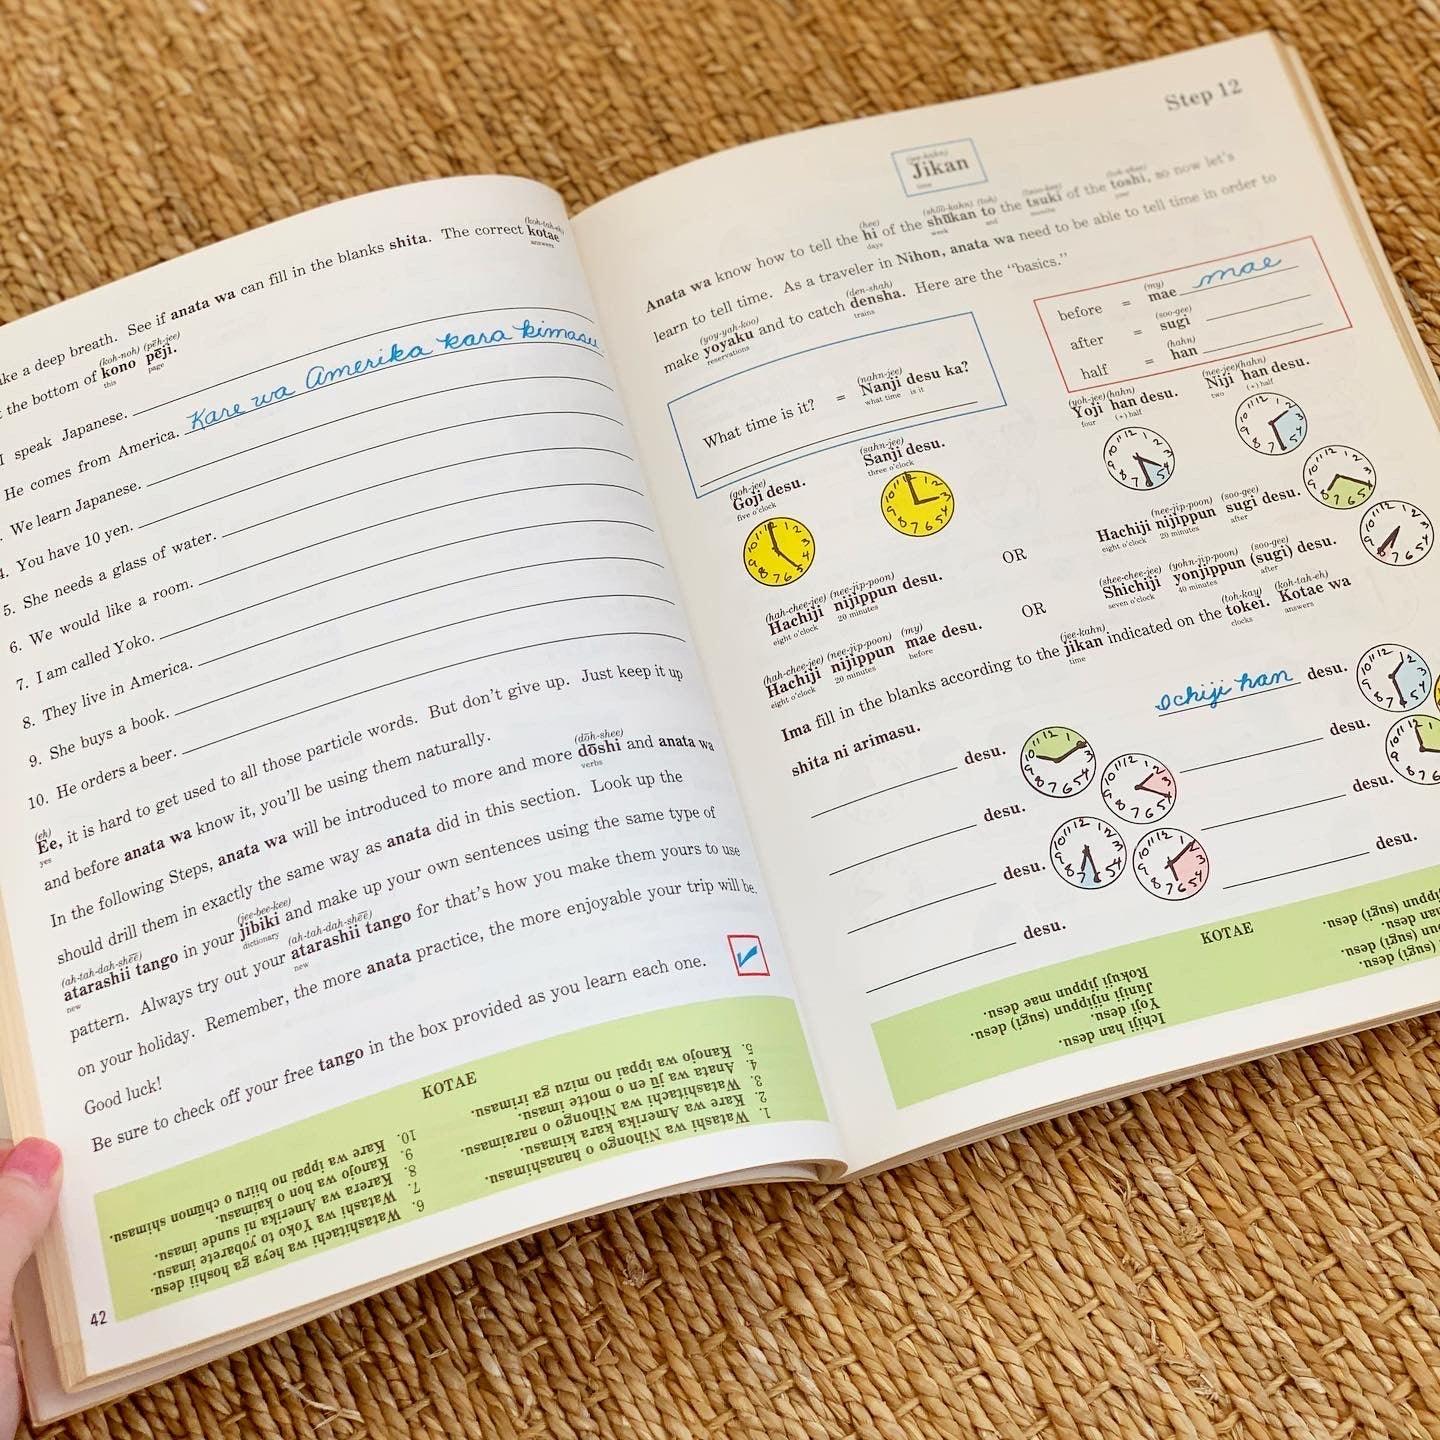 ke a deep breath. See if anata wa can fill in the blanks shita. The correct kotae
(koh-tah-eh)
answers
the bottom of kono pēji.
(koh-noh) (pēh-jee)
this page
I speak Japanese.
He comes from America. Kare wa Amerika kara kimasu.
We learn Japanese.
4. You have 10 yen.
5. She needs a glass of water.
6. We would like a room.
7. I am called Yoko.
8. They live in America.
9. She buys a book.
10. He orders a beer.
(eh)
Ee, it is hard to get used to all those particle words. But don't give up. Just keep it up
yes
and before anata wa know it, you'll be using them naturally.
(dōh-shee)
In the following Steps, anata wa will be introduced to more and more dōshi and anata wa
verbs
should drill them in exactly the same way as anata did in this section. Look up the
(ah-tah-dah-shēē) (jee-bee-kee)
atarashii tango in your jibiki and make up your own sentences using the same type of
new dictionary
(ah-tah-dah-shēē)
pattern. Always try out your atarashii tango for that's how you make them yours to use
new
on your holiday. Remember, the more anata practice, the more enjoyable your trip will be.
Good luck!
Be sure to check off your free tango in the box provided as you learn each one.
KOTAE
1. Watashi wa Nihongo o hanashimasu.
2. Kare wa Amerika kara kimasu.
3. Watashitachi wa Nihongo o naraimasu.
4. Anata wa jū en o motte imasu.
5. Kanojo wa ippai no mizu ga irimasu.
6. Watashitachi wa heya ga hoshii desu.
7. Watashi wa Yoko to yobarete imasu.
8. Karera wa Amerika ni sunde imasu.
9. Kanojo wa hon o kaimasu.
10. Kare wa ippai no biiru o chūmon shimasu.
42
Step 12
(jee-kahn)
Jikan
time
(hee) (shūū-kahn) (toh) (tsoo-kee) (toh-shee)
Anata wa know how to tell the hi of the shūkan to the tsuki of the toshi, so now let's
days week and months year
learn to tell time. As a traveler in Nihon, anata wa need to be able to tell time in order to
(yoy-yah-koo) (den-shah)
make yoyaku and to catch densha. Here are the "basics."
reservations trains
(nahn-jee)
What time is it? = Nanji desu ka?
what time is it
(my)
before = mae mae
(soo-gee)
after = sugi
(hahn)
half = han
(goh-jee)
Goji desu.
five o'clock
(sahn-jee)
Sanji desu.
three o'clock
(yoh-jee) (hahn)
Yoji han desu.
four (+) half
(nee-jee) (hahn)
Niji han desu.
two (+) half
(hah-chee-jee) (nee-jip-poon)
Hachiji nijippun desu.
eight o'clock 20 minutes
OR
(nee-jip-poon) (soo-gee)
Hachiji nijippun sugi desu.
eight o'clock 20 minutes after
(hah-chee-jee) (nee-jip-poon) (my)
Hachiji nijippun mae desu.
eight o'clock 20 minutes before
OR
(shee-chee-jee) (yohn-jip-poon) (soo-gee)
Shichiji yonjippun (sugi) desu.
seven o'clock 40 minutes after
(jee-kahn) (toh-kay) (koh-tah-eh)
Ima fill in the blanks according to the jikan indicated on the tokei. Kotae wa
time clocks answers
shita ni arimasu.
Ichiji han desu.
desu.
desu.
desu.
desu.
desu.
desu.
desu.
KOTAE
Ichiji han desu.
Yoji desu.
Jūniji nijippun (sugi) desu.
Rokuji jippun mae desu.
(sugi) desu.
un (sugi) desu.
han desu.
pun (sugi) desu.